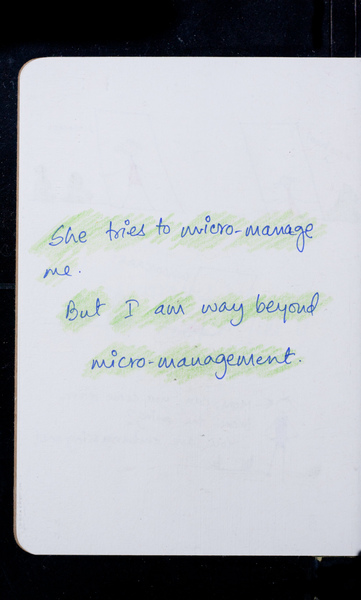 She tries to micro-manage
me.
But I am way beyond
micro-management.